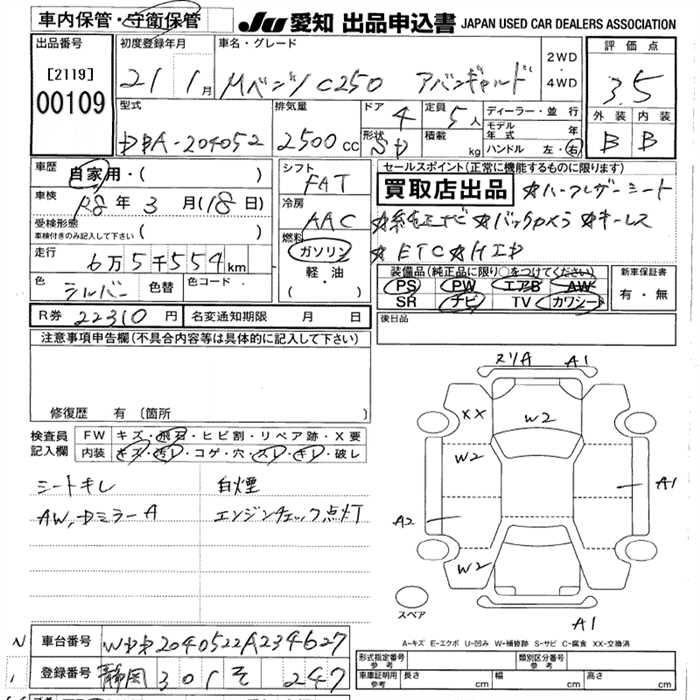 車内保管・守衛保管
JU 愛知 出品申込書 JAPAN USED CAR DEALERS ASSOCIATION
出品番号 初度登録年月 車名・グレード 2WD・4WD 評価点
[2119] 00109 21 1月 Mベンツ C250 アバンギャルド 3.5
型式 排気量 ドア 4 定員 5人 ディーラー・並行 外装 内装
DBA-204052 2500cc 形状 SD 積載 kg モデル年式 年 B B
ハンドル 左・右
車歴 自家用・( ) シフト FAT セールスポイント(正常に機能するものに限ります)
車検 R8年 3月(18日) 冷房 AAC 買取店出品 ☆ハーフレザーシート
受検形態 車検付きのみ記入して下さい ( ) 燃料 ☆純正ナビ☆バックカメラ☆キーレス
走行 6万5千554km ガソリン ☆ETC☆HID
軽・油 ・( )
装備品(純正品に限り○をつけてください) 新車保証書
色 シルバー 色替 色コード PS PW エアB AW 有・無
SR ナビ TV カワシート
R券 22310円 名変通知期限 月 日 後日品
注意事項申告欄(不具合内容等は具体的に記入して下さい)
修復歴 有(箇所
検査員記入欄 FW キズ・飛石・ヒビ割・リペア跡・X要
内装 キズ・汚レ・コゲ・穴・スレ・キレ・破レ
シートキレ 白煙
AW,DミラーA エンジンチェック点灯
スリA A1
XX W2
W2 A1
A2
W2
スペア A1
A-キズ E-エクボ U-凹み W-補修跡 S-サビ C-腐食 XX-交換済
N 車台番号 WDD2040522A234627
1 登録番号 静岡 301 そ 247
形式指定番号 参考 類別区分番号 参考
車庫証明用 参考 長さ cm 幅 cm 高さ cm